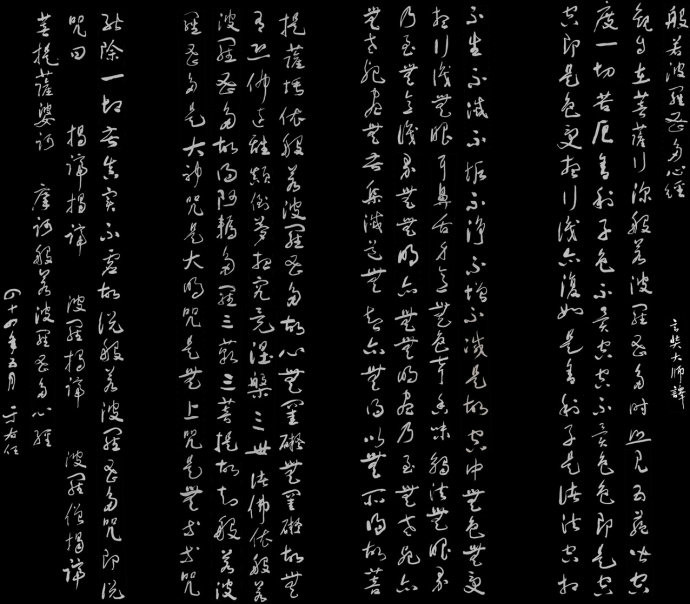 般若波羅蜜多心經
玄奘大師譯
觀自在菩薩行深般若波羅蜜多時照見五蘊皆空
度一切苦厄舍利子色不異空空不異色色即是空
空即是色受想行識亦復如是舍利子是諸法空相
不生不滅不垢不淨不增不減是故空中無色無受
想行識無眼耳鼻舌身意無色聲香味觸法無眼界
乃至無意識界無無明亦無無明盡乃至無老死亦
無老死盡無苦集滅道無智亦無得以無所得故菩
提薩埵依般若波羅蜜多故心無罣礙無罣礙故無
有恐怖遠離顛倒夢想究竟涅槃三世諸佛依般若
波羅蜜多故得阿耨多羅三藐三菩提故知般若波
羅蜜多是大神咒是大明咒是無上咒是無等等咒
能除一切苦真實不虛故說般若波羅蜜多咒即說
咒曰 揭諦揭諦 波羅揭諦 波羅僧揭諦
菩提薩婆訶 摩訶般若波羅蜜多心經
四十四年五月 于右任